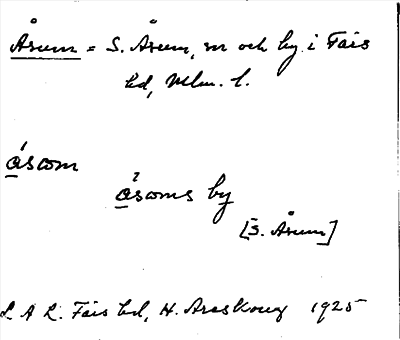 Årum = S. Årum, sn och by i Fårs
hd, Mlm. l.
åsωm
åsωms by
[S. Årum]
L A L. Färs hd, H. Areskoug 1925